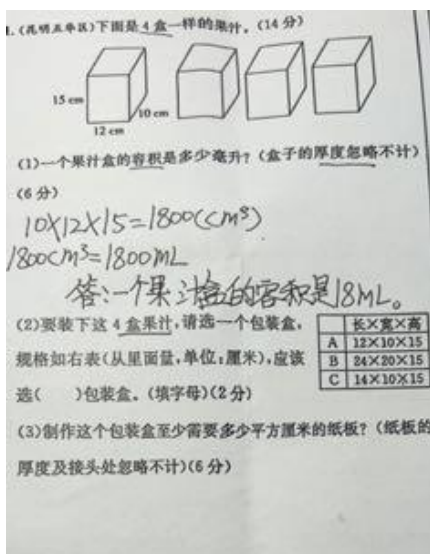 1.(昆明五华区)下面是4盒一样的果汁。(14分)
15 cm
10 cm
12 cm
(1)一个果汁盒的容积是多少毫升?(盒子的厚度忽略不计)
(6分)
10×12×15=1800(cm³)
1800cm³=1800mL
答:一个果汁盒的容积是18mL。
(2)要装下这4盒果汁,请选一个包装盒,
规格如右表(从里面量,单位:厘米),应该
选( )包装盒。(填字母)(2分)
长×宽×高
A 12×10×15
B 24×20×15
C 14×10×15
(3)制作这个包装盒至少需要多少平方厘米的纸板?(纸板的
厚度及接头处忽略不计)(6分)